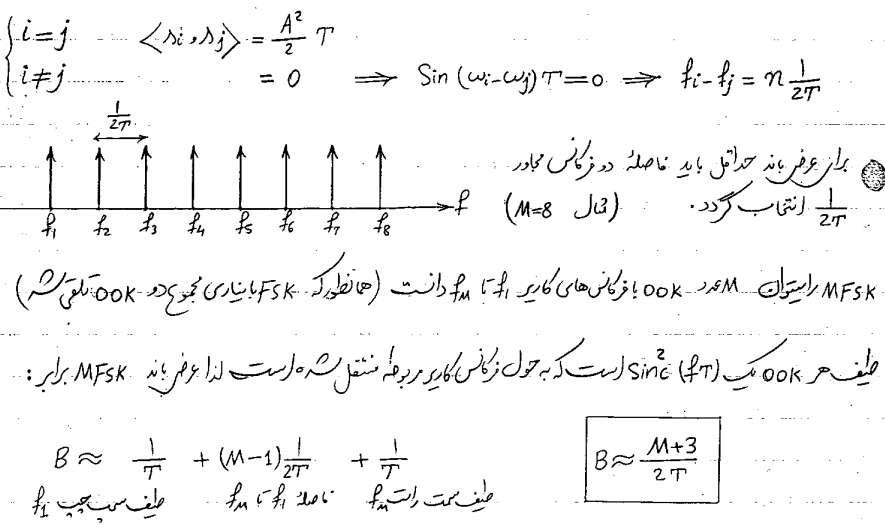 i = j    < si , sj > = A²/2 T
i ≠ j    = 0 ⟹ Sin (ωi - ωj) T = 0 ⟹ fi - fj = n 1/2T
1/2T
f1 f2 f3 f4 f5 f6 f7 f8 f
برای عرض باند حداقل باید فاصلهٔ دو فرکانس مجاور
1/2T انتخاب گردد. (مثال M=8)
MFSK را میتوان M عدد OOK با فرکانس های کاریر f1 تا fM دانست (همانطور که FSK باینری مجموع دو OOK تلقی شد)
طیف هر OOK یک Sinc² (fT) است که به حول فرکانس کاریر مربوطه منتقل شده است لذا عرض باند MFSK برابر :
B ≈ 1/T + (M-1) 1/2T + 1/T    B ≈ M+3/2T
طیف سمت چپ f1    فاصله f1 تا fM    طیف سمت راست fM